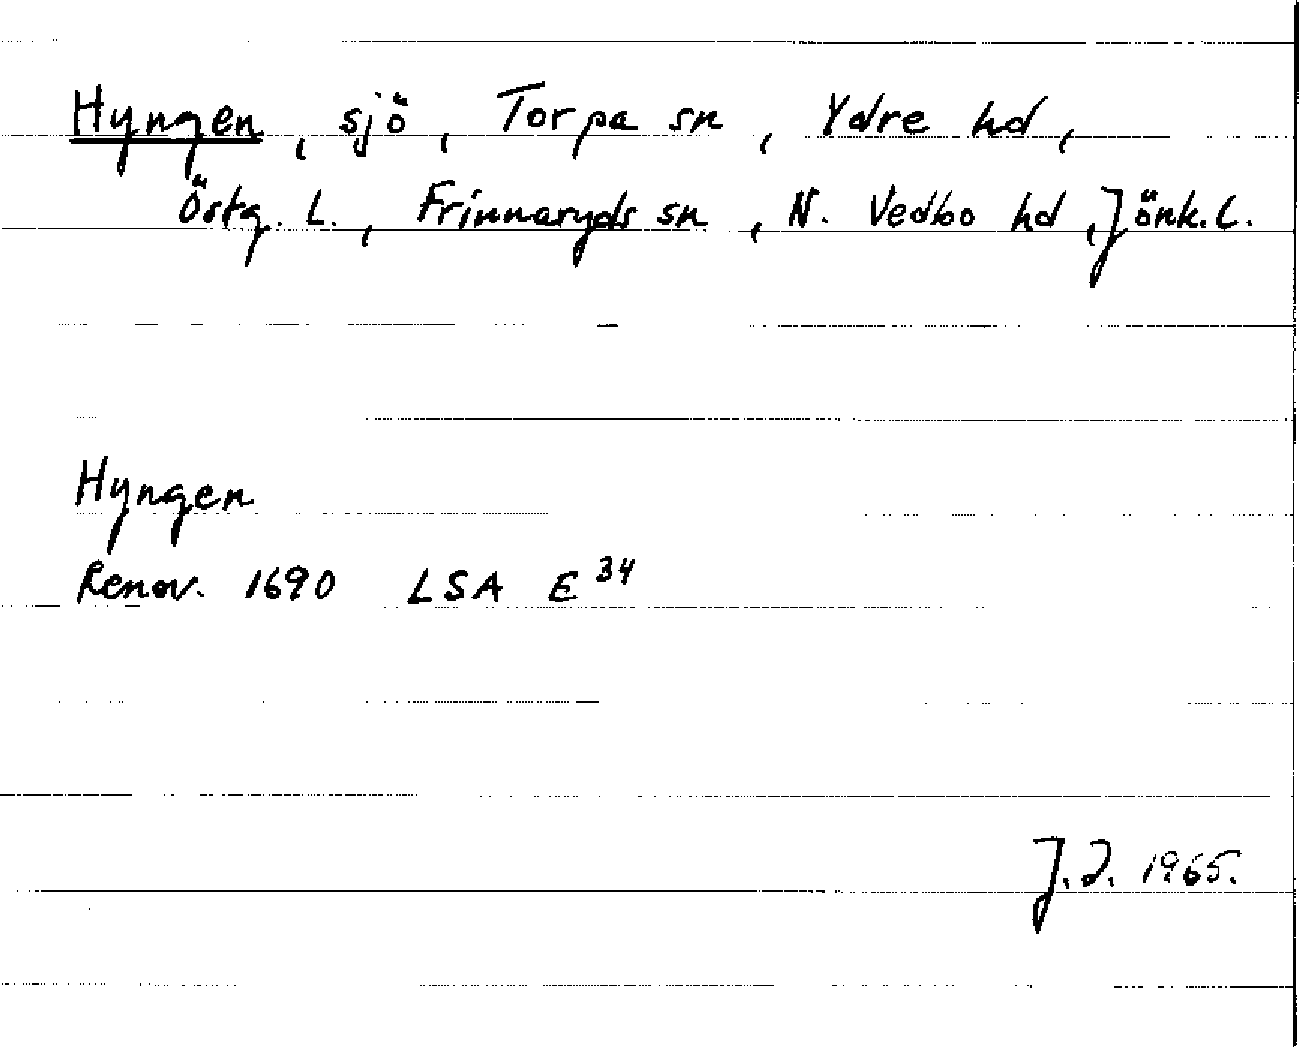 Hyngen, sjö, Torpa sn, Ydre hd,
Östg. L., Frinnaryds sn, N. Vedbo hd, Jönk. L.
Hyngen
Renov. 1690 LSA E 34
J. J. 1965.